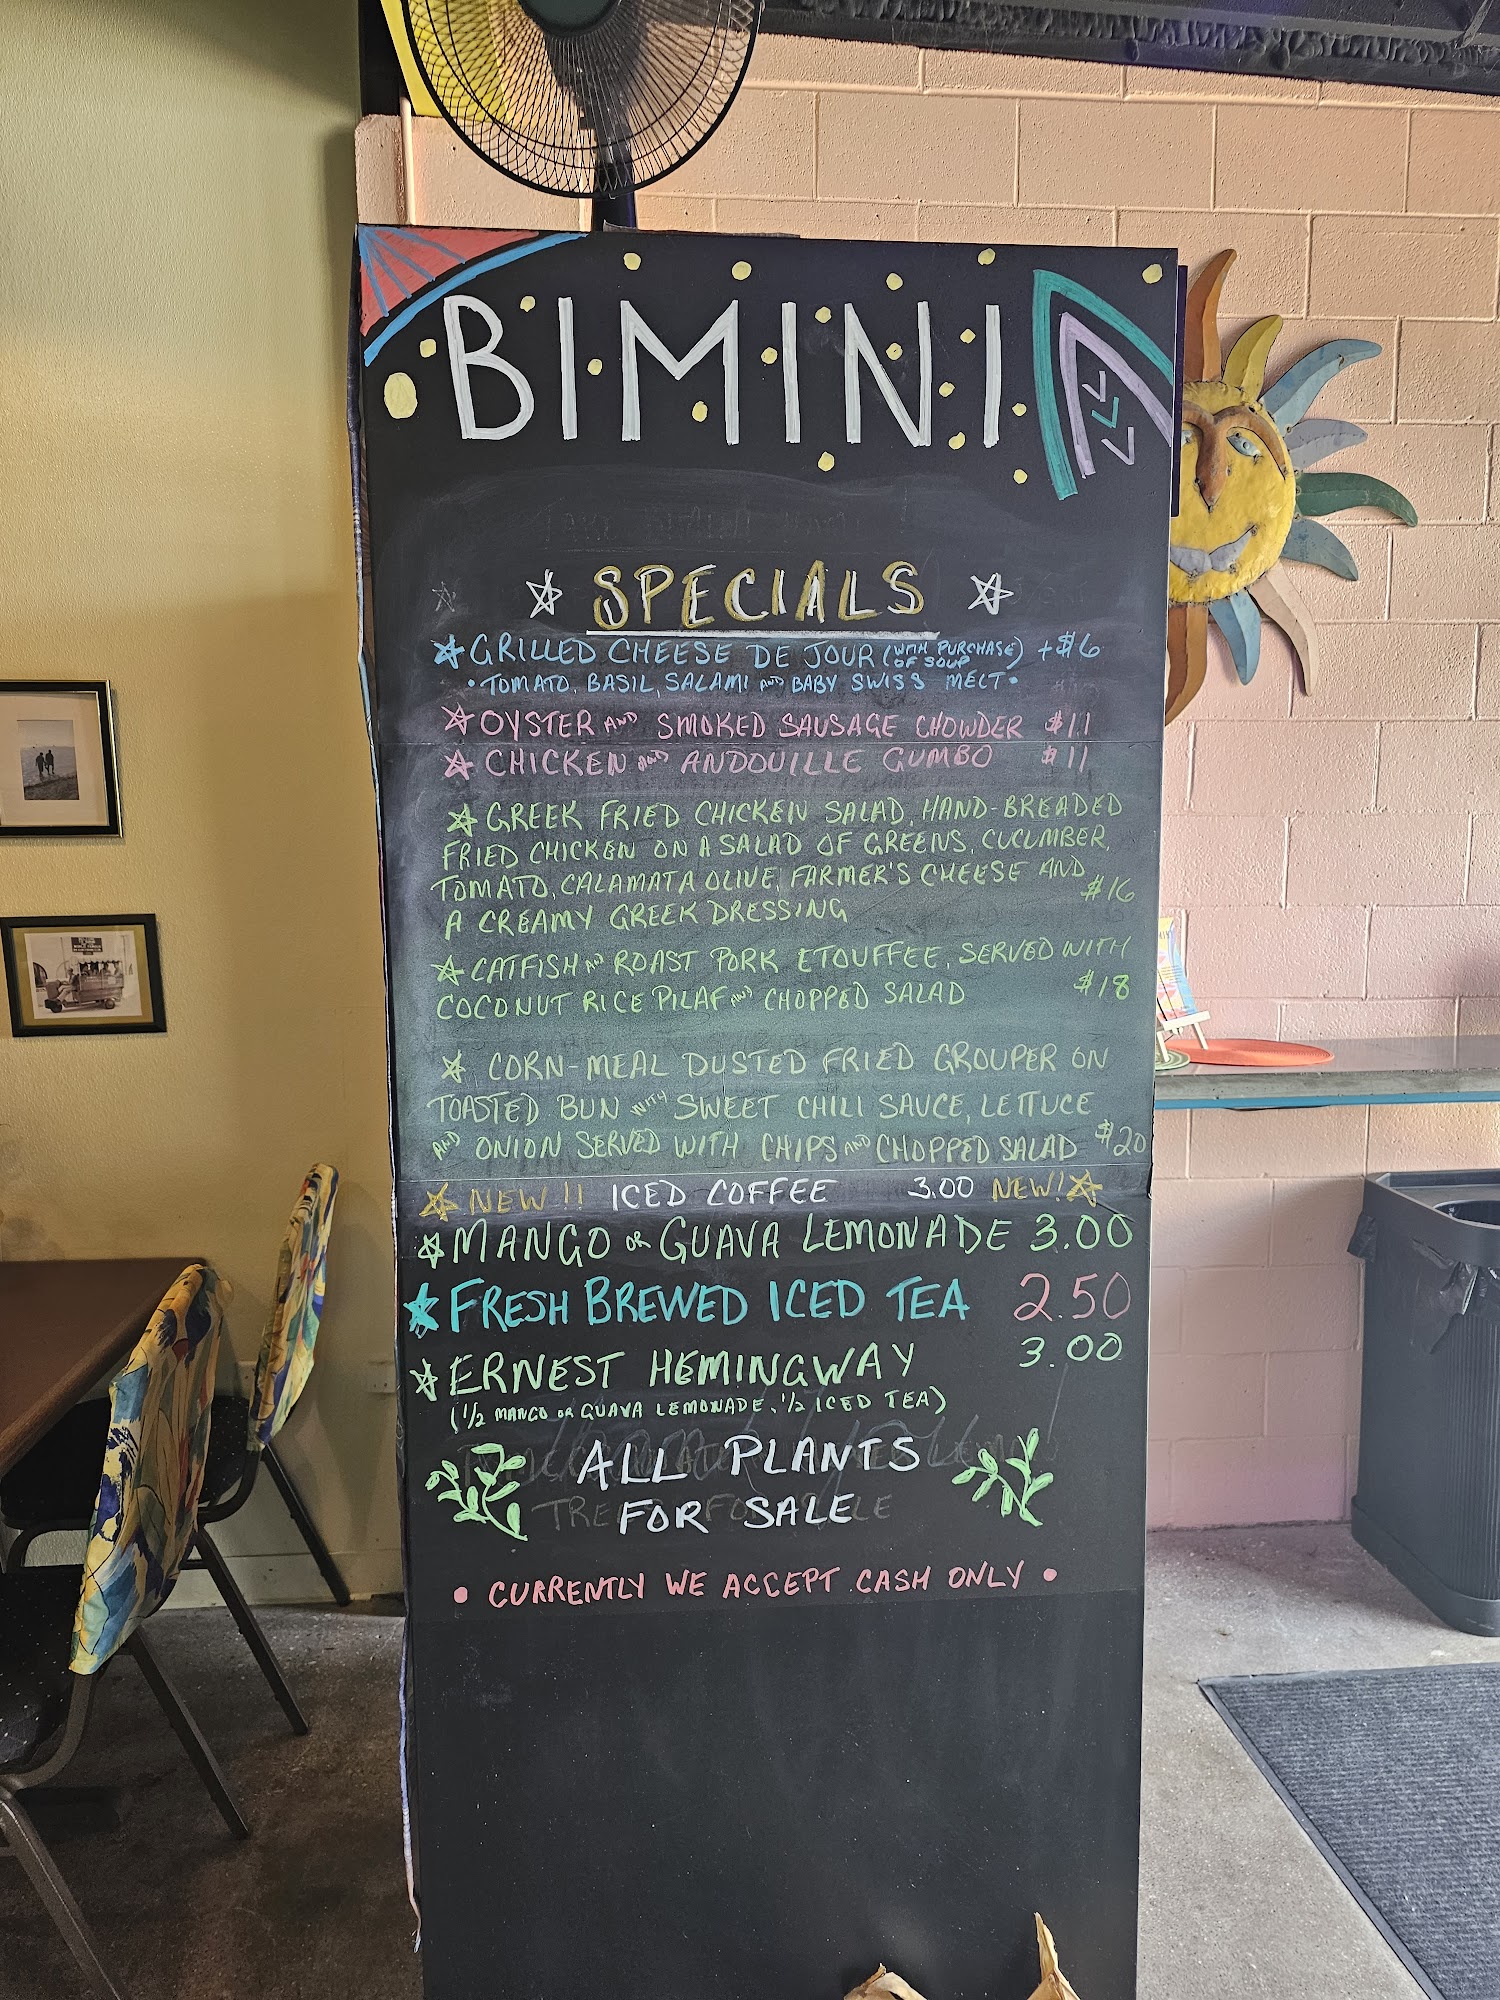 BIMINI
SPECIALS
GRILLED CHEESE DE JOUR (WITH PURCHASE OF SOUP) +$6
• TOMATO, BASIL, SALAMI AND BABY SWISS MELT •
OYSTER AND SMOKED SAUSAGE CHOWDER $11
CHICKEN AND ANDOUILLE GUMBO $11
GREEK FRIED CHICKEN SALAD, HAND-BREADED
FRIED CHICKEN ON A SALAD OF GREENS, CUCUMBER,
TOMATO, CALAMATA OLIVE, FARMER'S CHEESE AND
A CREAMY GREEK DRESSING $16
CATFISH AND ROAST PORK ETOUFFEE, SERVED WITH
COCONUT RICE PILAF AND CHOPPED SALAD $18
CORN-MEAL DUSTED FRIED GROUPER ON
TOASTED BUN WITH SWEET CHILI SAUCE, LETTUCE
AND ONION SERVED WITH CHIPS AND CHOPPED SALAD $20
NEW!! ICED COFFEE 3.00 NEW!
MANGO OR GUAVA LEMONADE 3.00
FRESH BREWED ICED TEA 2.50
ERNEST HEMINGWAY 3.00
(1/2 MANGO OR GUAVA LEMONADE, 1/2 ICED TEA)
ALL PLANTS
FOR SALE
• CURRENTLY WE ACCEPT CASH ONLY •